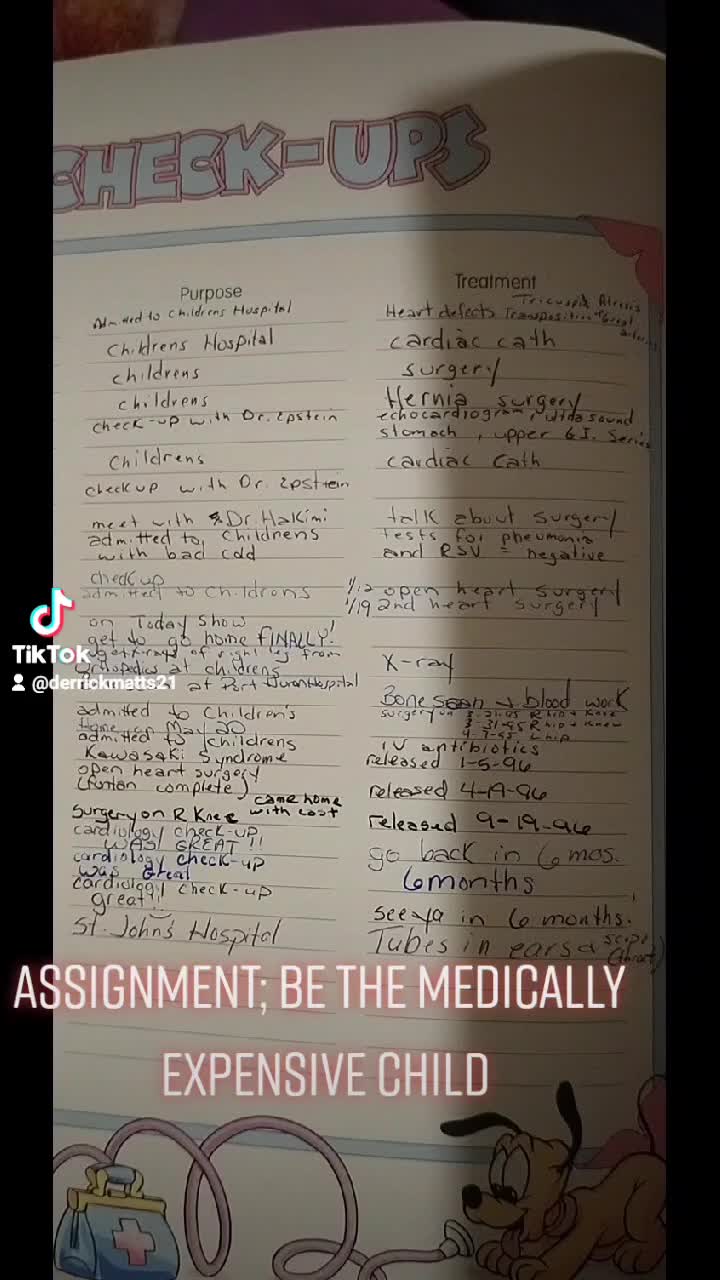 CHECK-UPS
Purpose Treatment
Admitted to Childrens Hospital Heart defects Tricuspid Atresia
Transposition of Great
Childrens Hospital cardiac cath
childrens surgery
childrens Hernia surgery
check-up with Dr. Epstein echocardiogram, ultra sound
stomach, upper G.I. Series
Childrens cardiac cath
check up with Dr. Epstein
meet with Dr. Hakimi talk about surgery
admitted to childrens tests for pneumonia
with bad cold and RSV = negative
check up
admitted to childrens 1/12 open heart surgery
1/19 2nd heart surgery
on Today Show
get to go home FINALLY!
get x-rays of right leg from
Orthopedics at childrens X-ray
at Port Huron Hospital Bone scan & blood work
admitted to Children's surgery on 3-21-95 R hip + knee
3-31-95 R hip + knee
Home on May 20 4-7-95 L hip
admitted to childrens IV antibiotics
Kawasaki Syndrome released 1-5-96
open heart surgery
(fontan complete) released 4-19-96
Surgery on R Knee came home with cast released 9-19-96
cardiology check-up go back in 6 mos.
WAS GREAT!!
cardiology check-up 6 months
was Great
cardiology check-up see ya in 6 months.
great!!
St. John's Hospital Tubes in ears & scope (throat)
TikTok
@derrickmatts21
ASSIGNMENT; BE THE MEDICALLY
EXPENSIVE CHILD